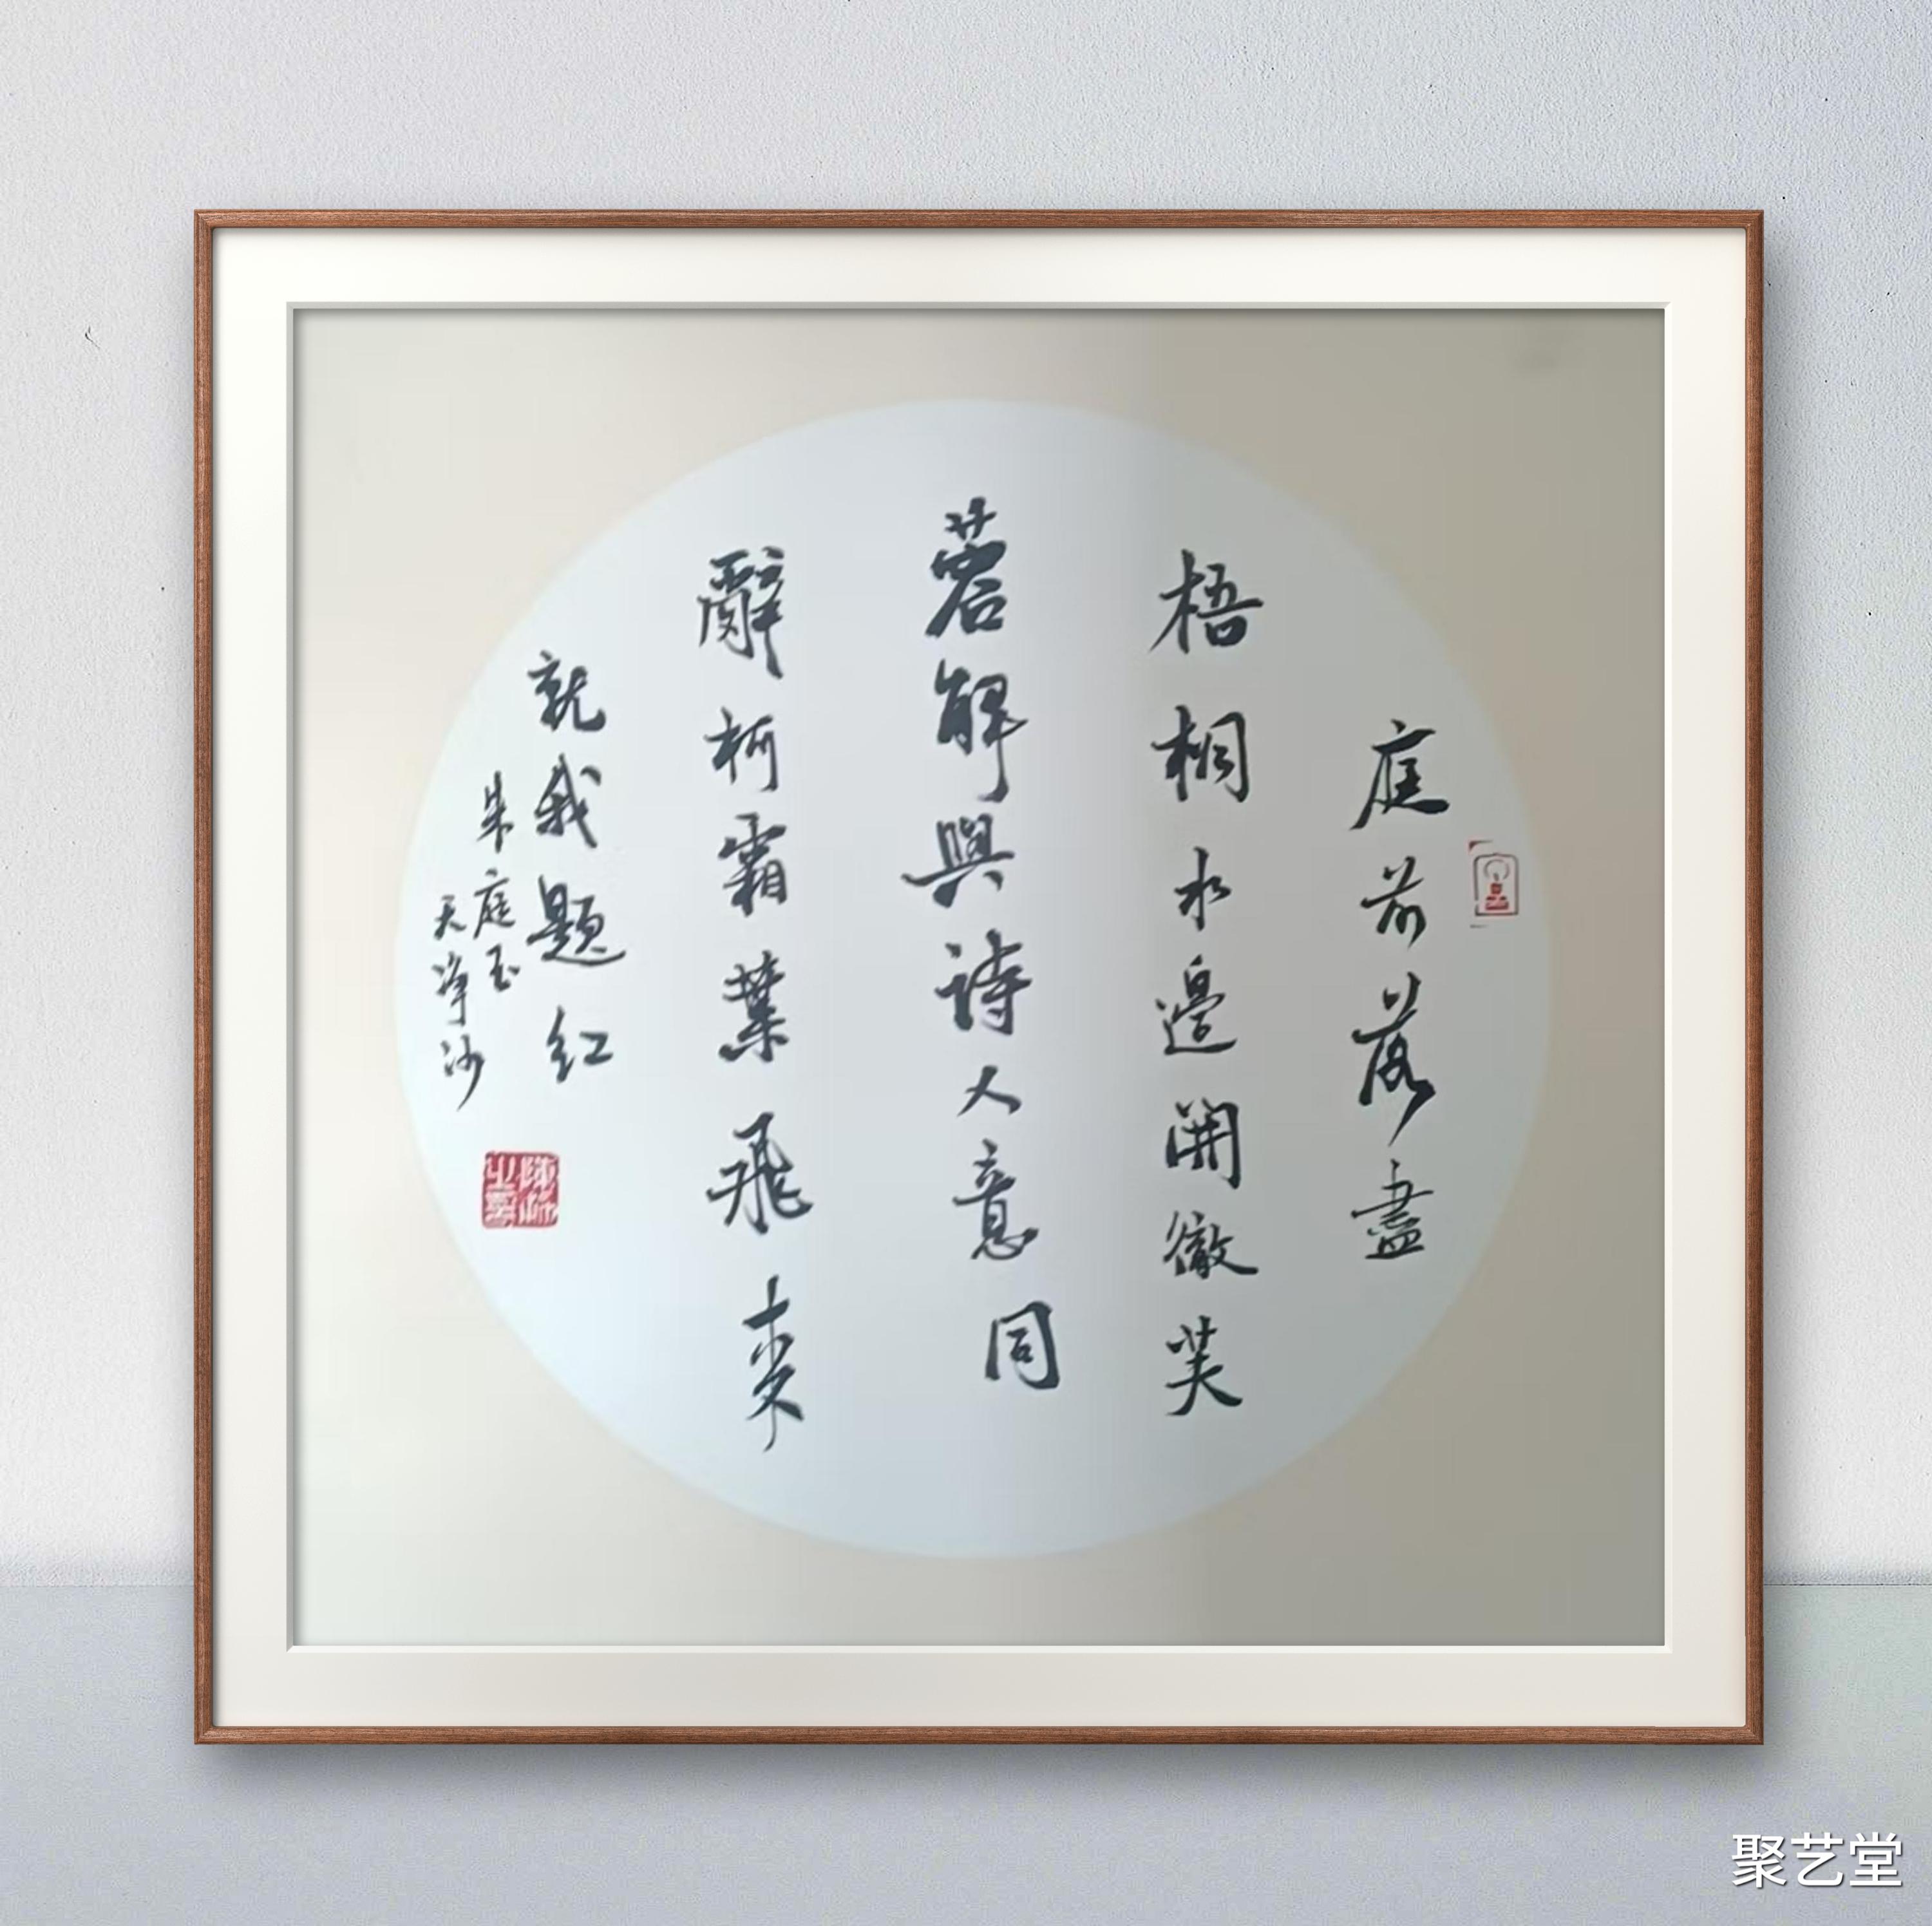 庭前落盡
梧桐水邊開徹芙
蓉解與詩人意同
辭柯霜葉飛來
就我題紅
朱庭玉
天净沙
聚艺堂